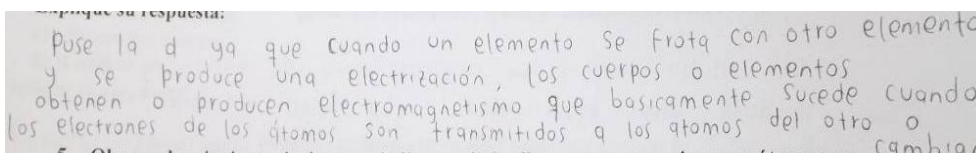 Explique su respuesta:
Puse la d ya que cuando un elemento se frota con otro elemento
y se produce una electrización, los cuerpos o elementos
obtenen o producen electromagnetismo que basicamente sucede cuando
los electrones de los átomos son transmitidos a los atomos del otro o
cambian